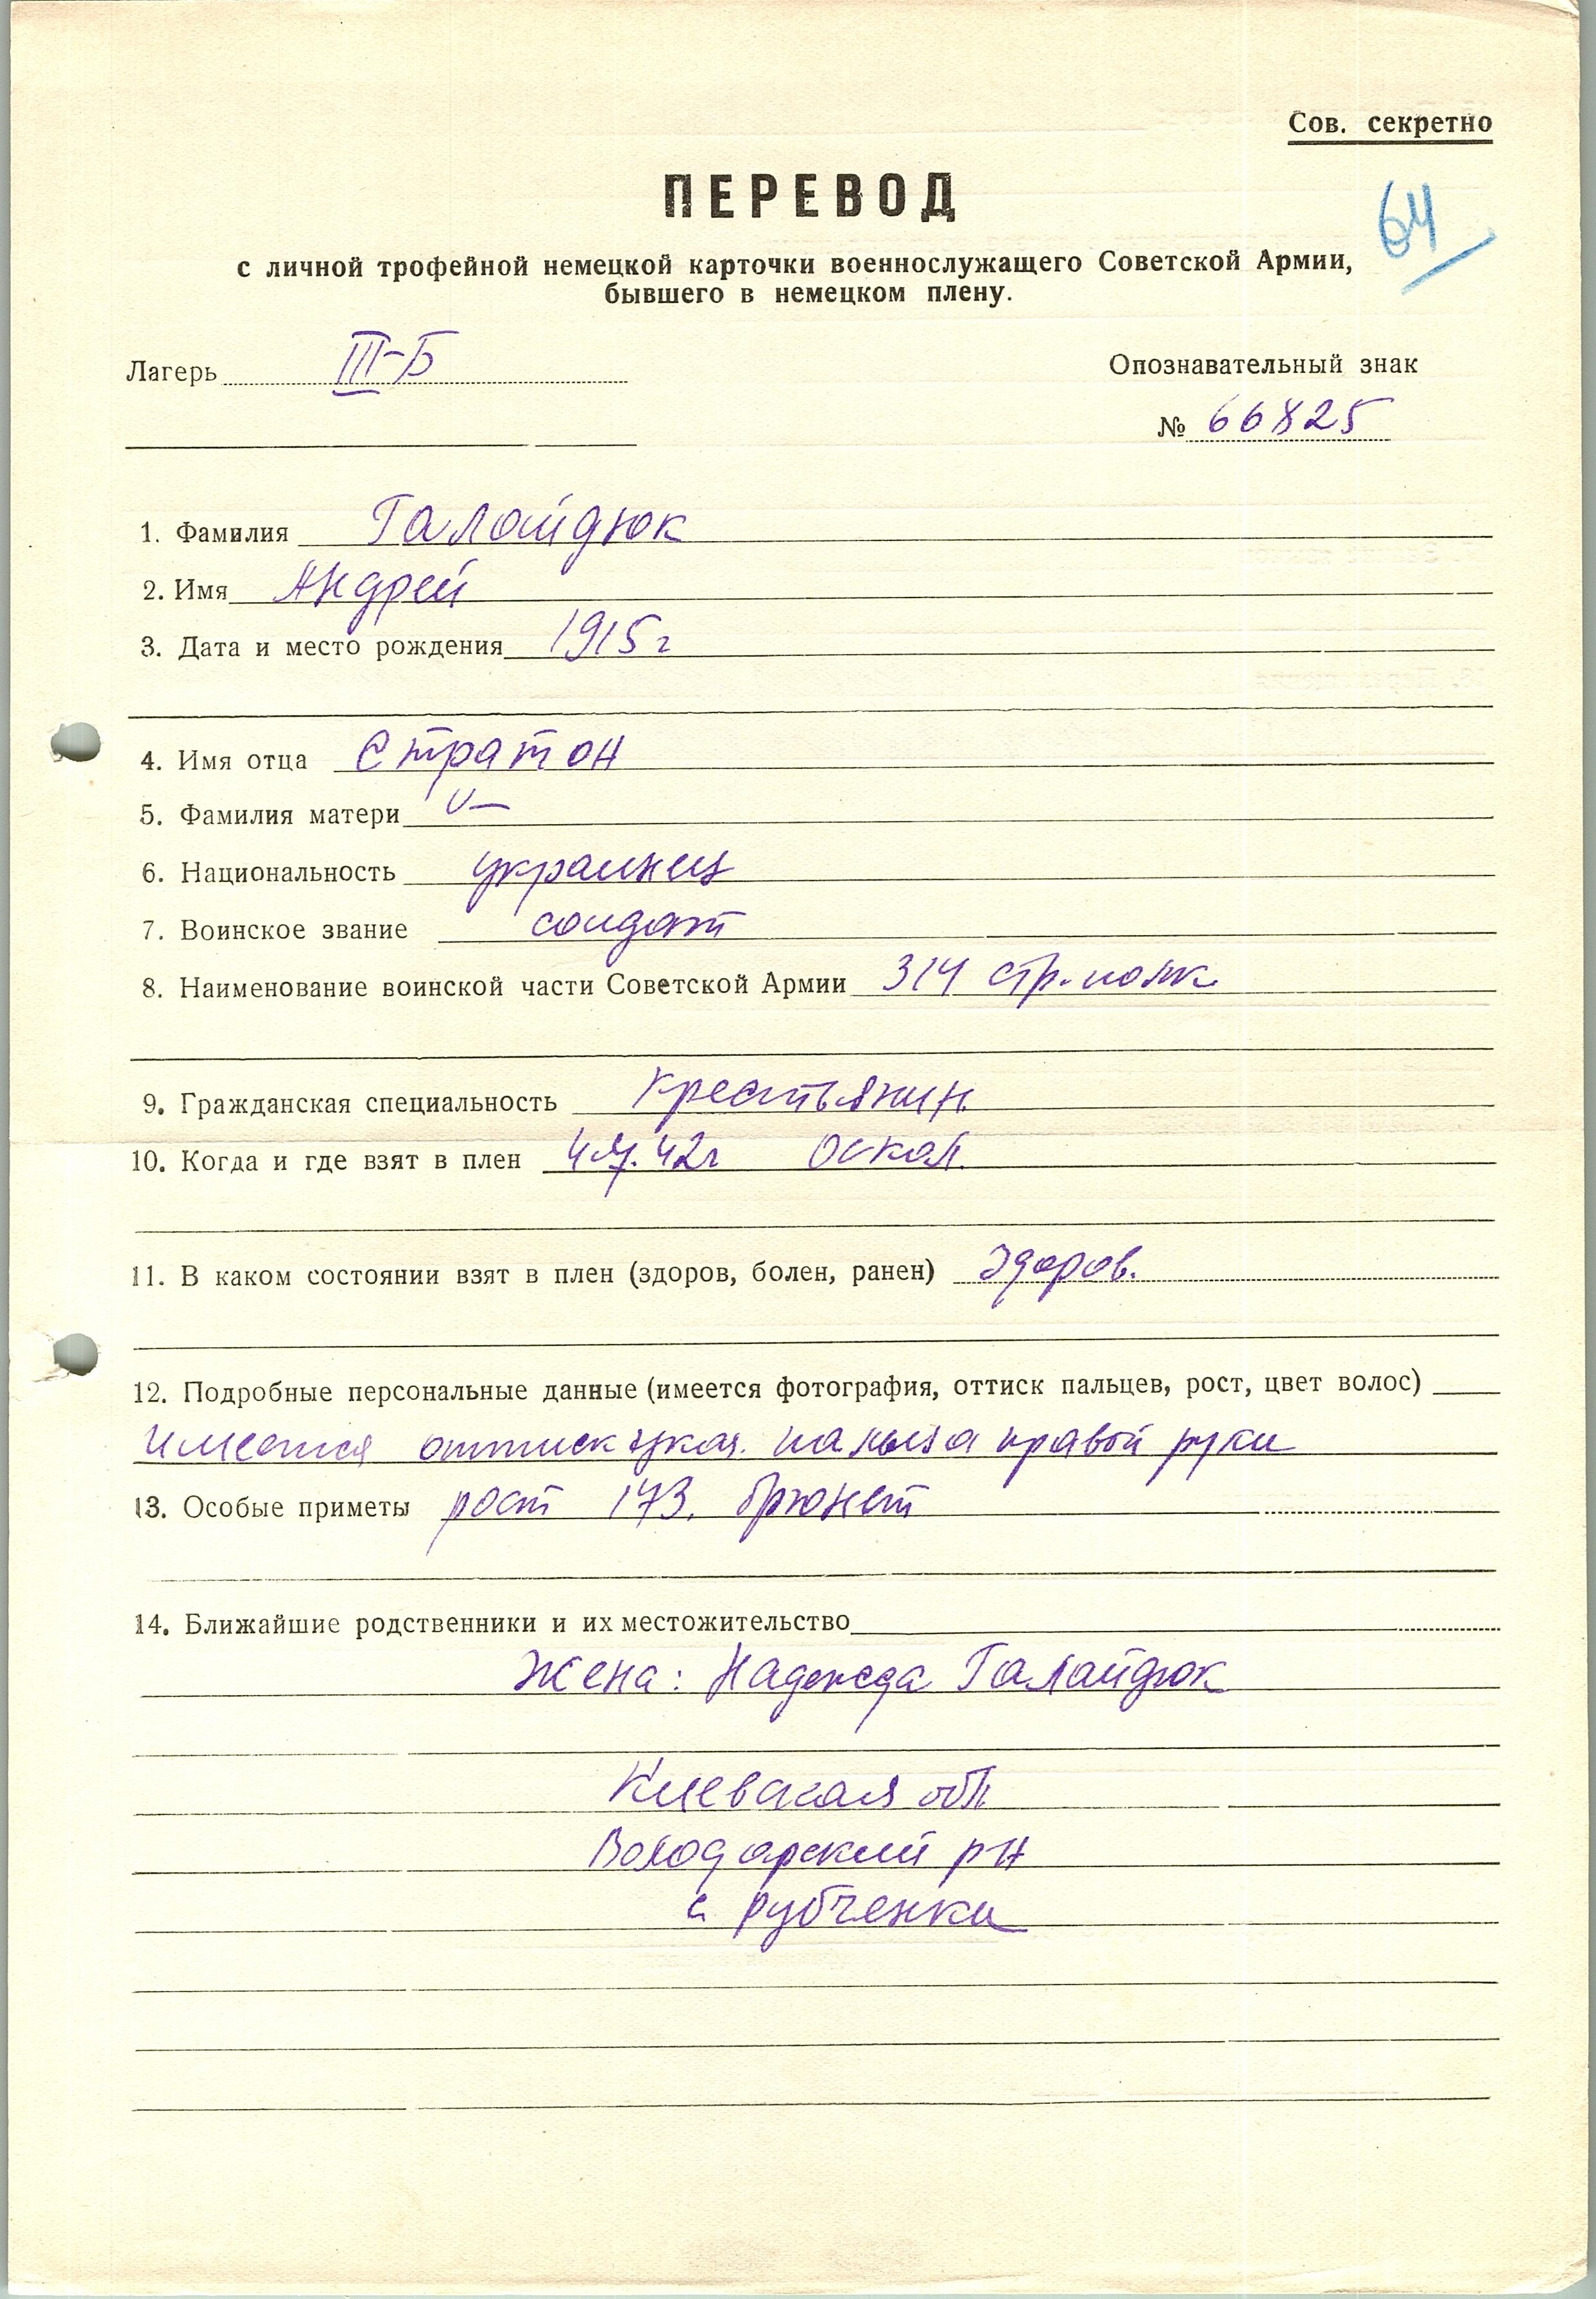 Сов. секретно
ПЕРЕВОД
64
с личной трофейной немецкой карточки военнослужащего Советской Армии,
бывшего в немецком плену.
Лагерь III-Б
Опознавательный знак
№ 66825
1. Фамилия Галайдюк
2. Имя Андрей
3. Дата и место рождения 1915 г
4. Имя отца Стратон
5. Фамилия матери —
6. Национальность украинец
7. Воинское звание солдат
8. Наименование воинской части Советской Армии 314 стр. полк
9. Гражданская специальность крестьянин
10. Когда и где взят в плен 42г Оскол
11. В каком состоянии взят в плен (здоров, болен, ранен) здоров.
12. Подробные персональные данные (имеется фотография, оттиск пальцев, рост, цвет волос)
имеется оттиск указ. пальца правой руки
13. Особые приметы рост 173. брюнет
14. Ближайшие родственники и их местожительство
Жена: Надежда Галайдюк
Киевская обл
Володарский р-н
с. Рубченки